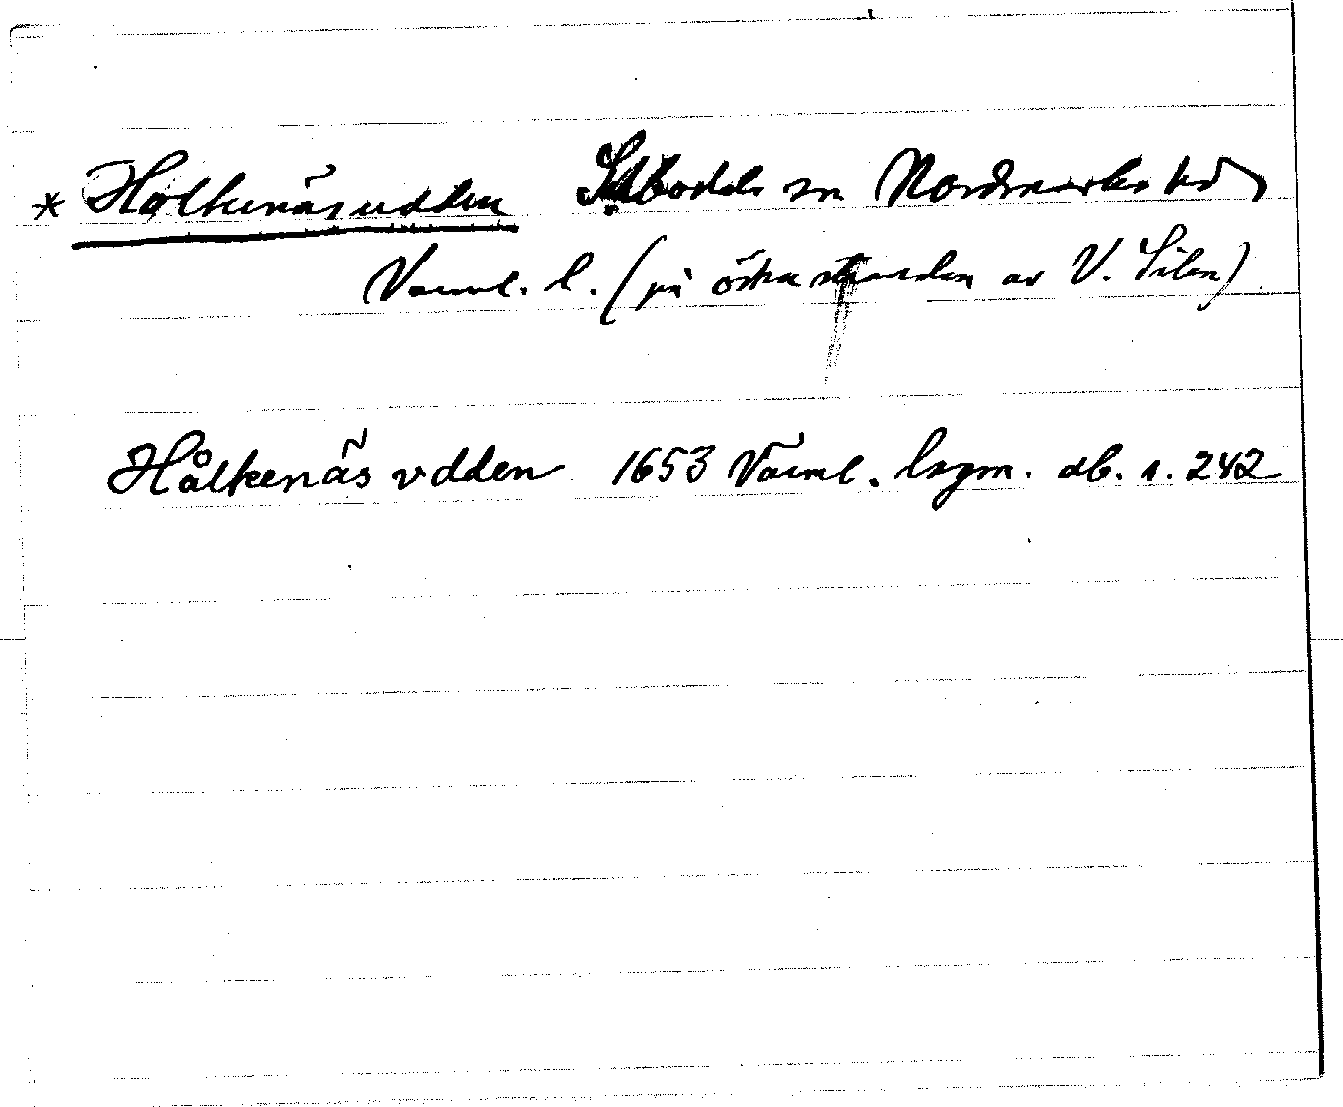 * Holkenäsudden Silbodals sn Nordmarks hd
Värml. l. (på östra stranden av V. Silen)
Hålkenäs vdden 1653 Värml. lsgm. db. s. 242